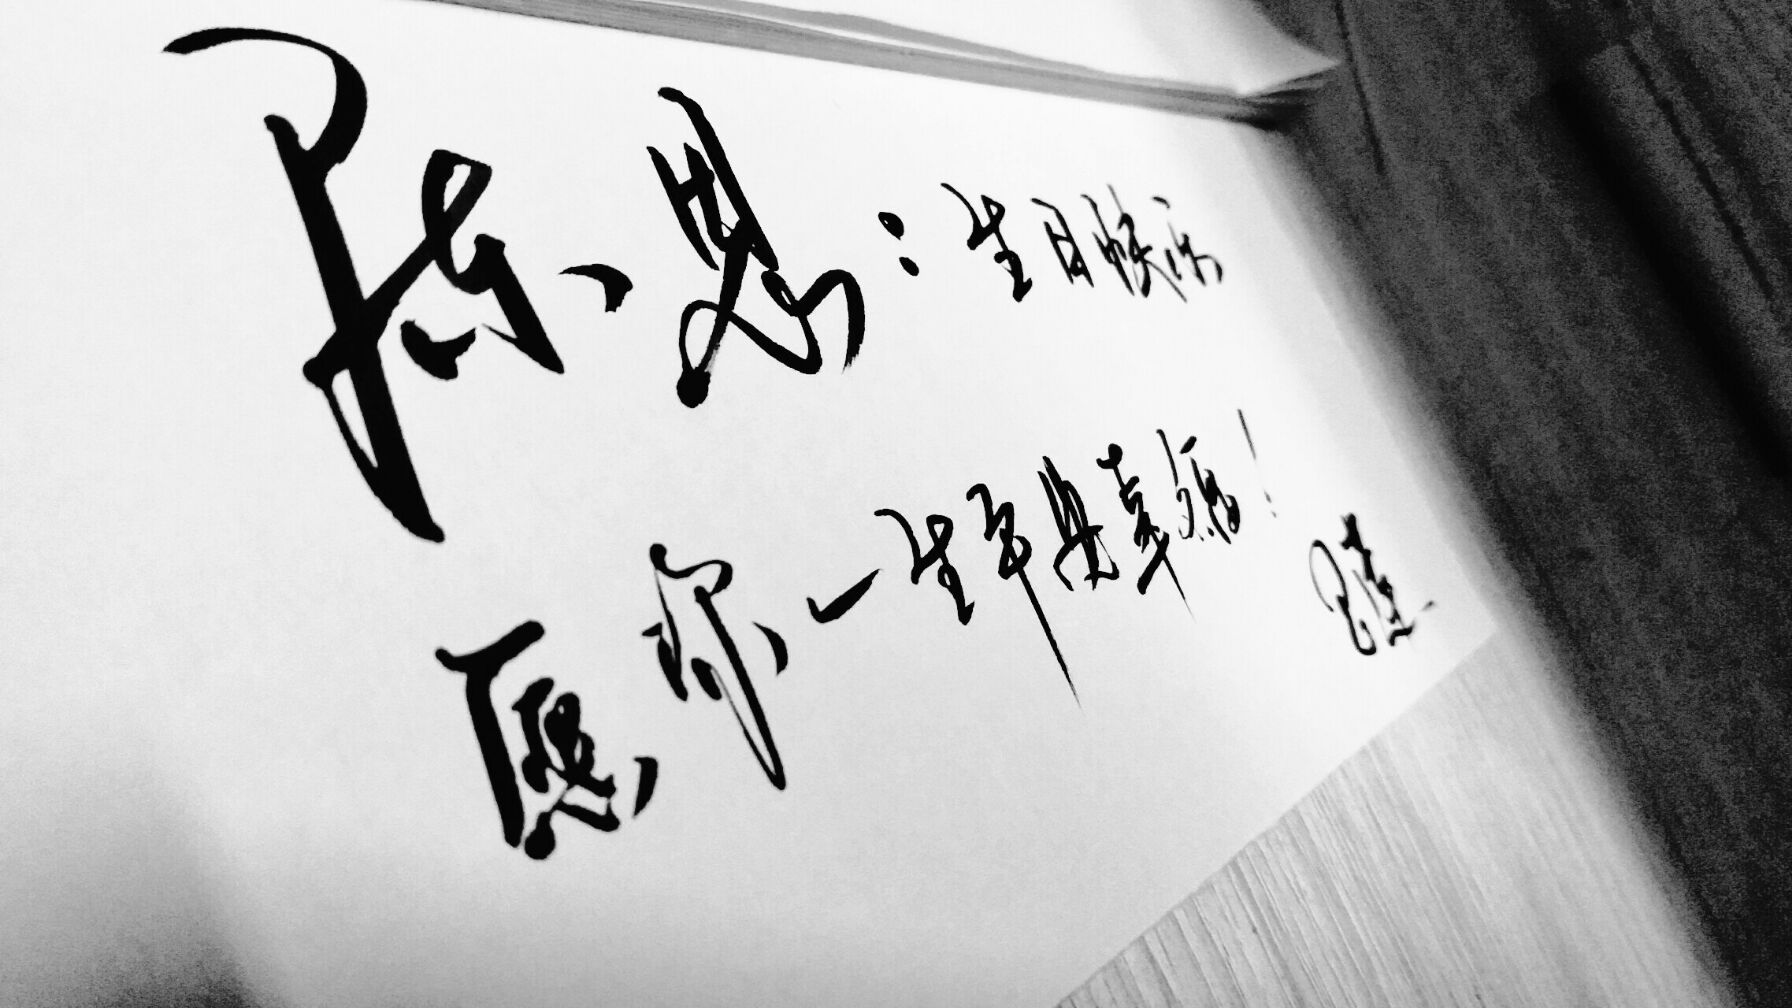 陈思：生日快乐
愿你一生平安幸福！